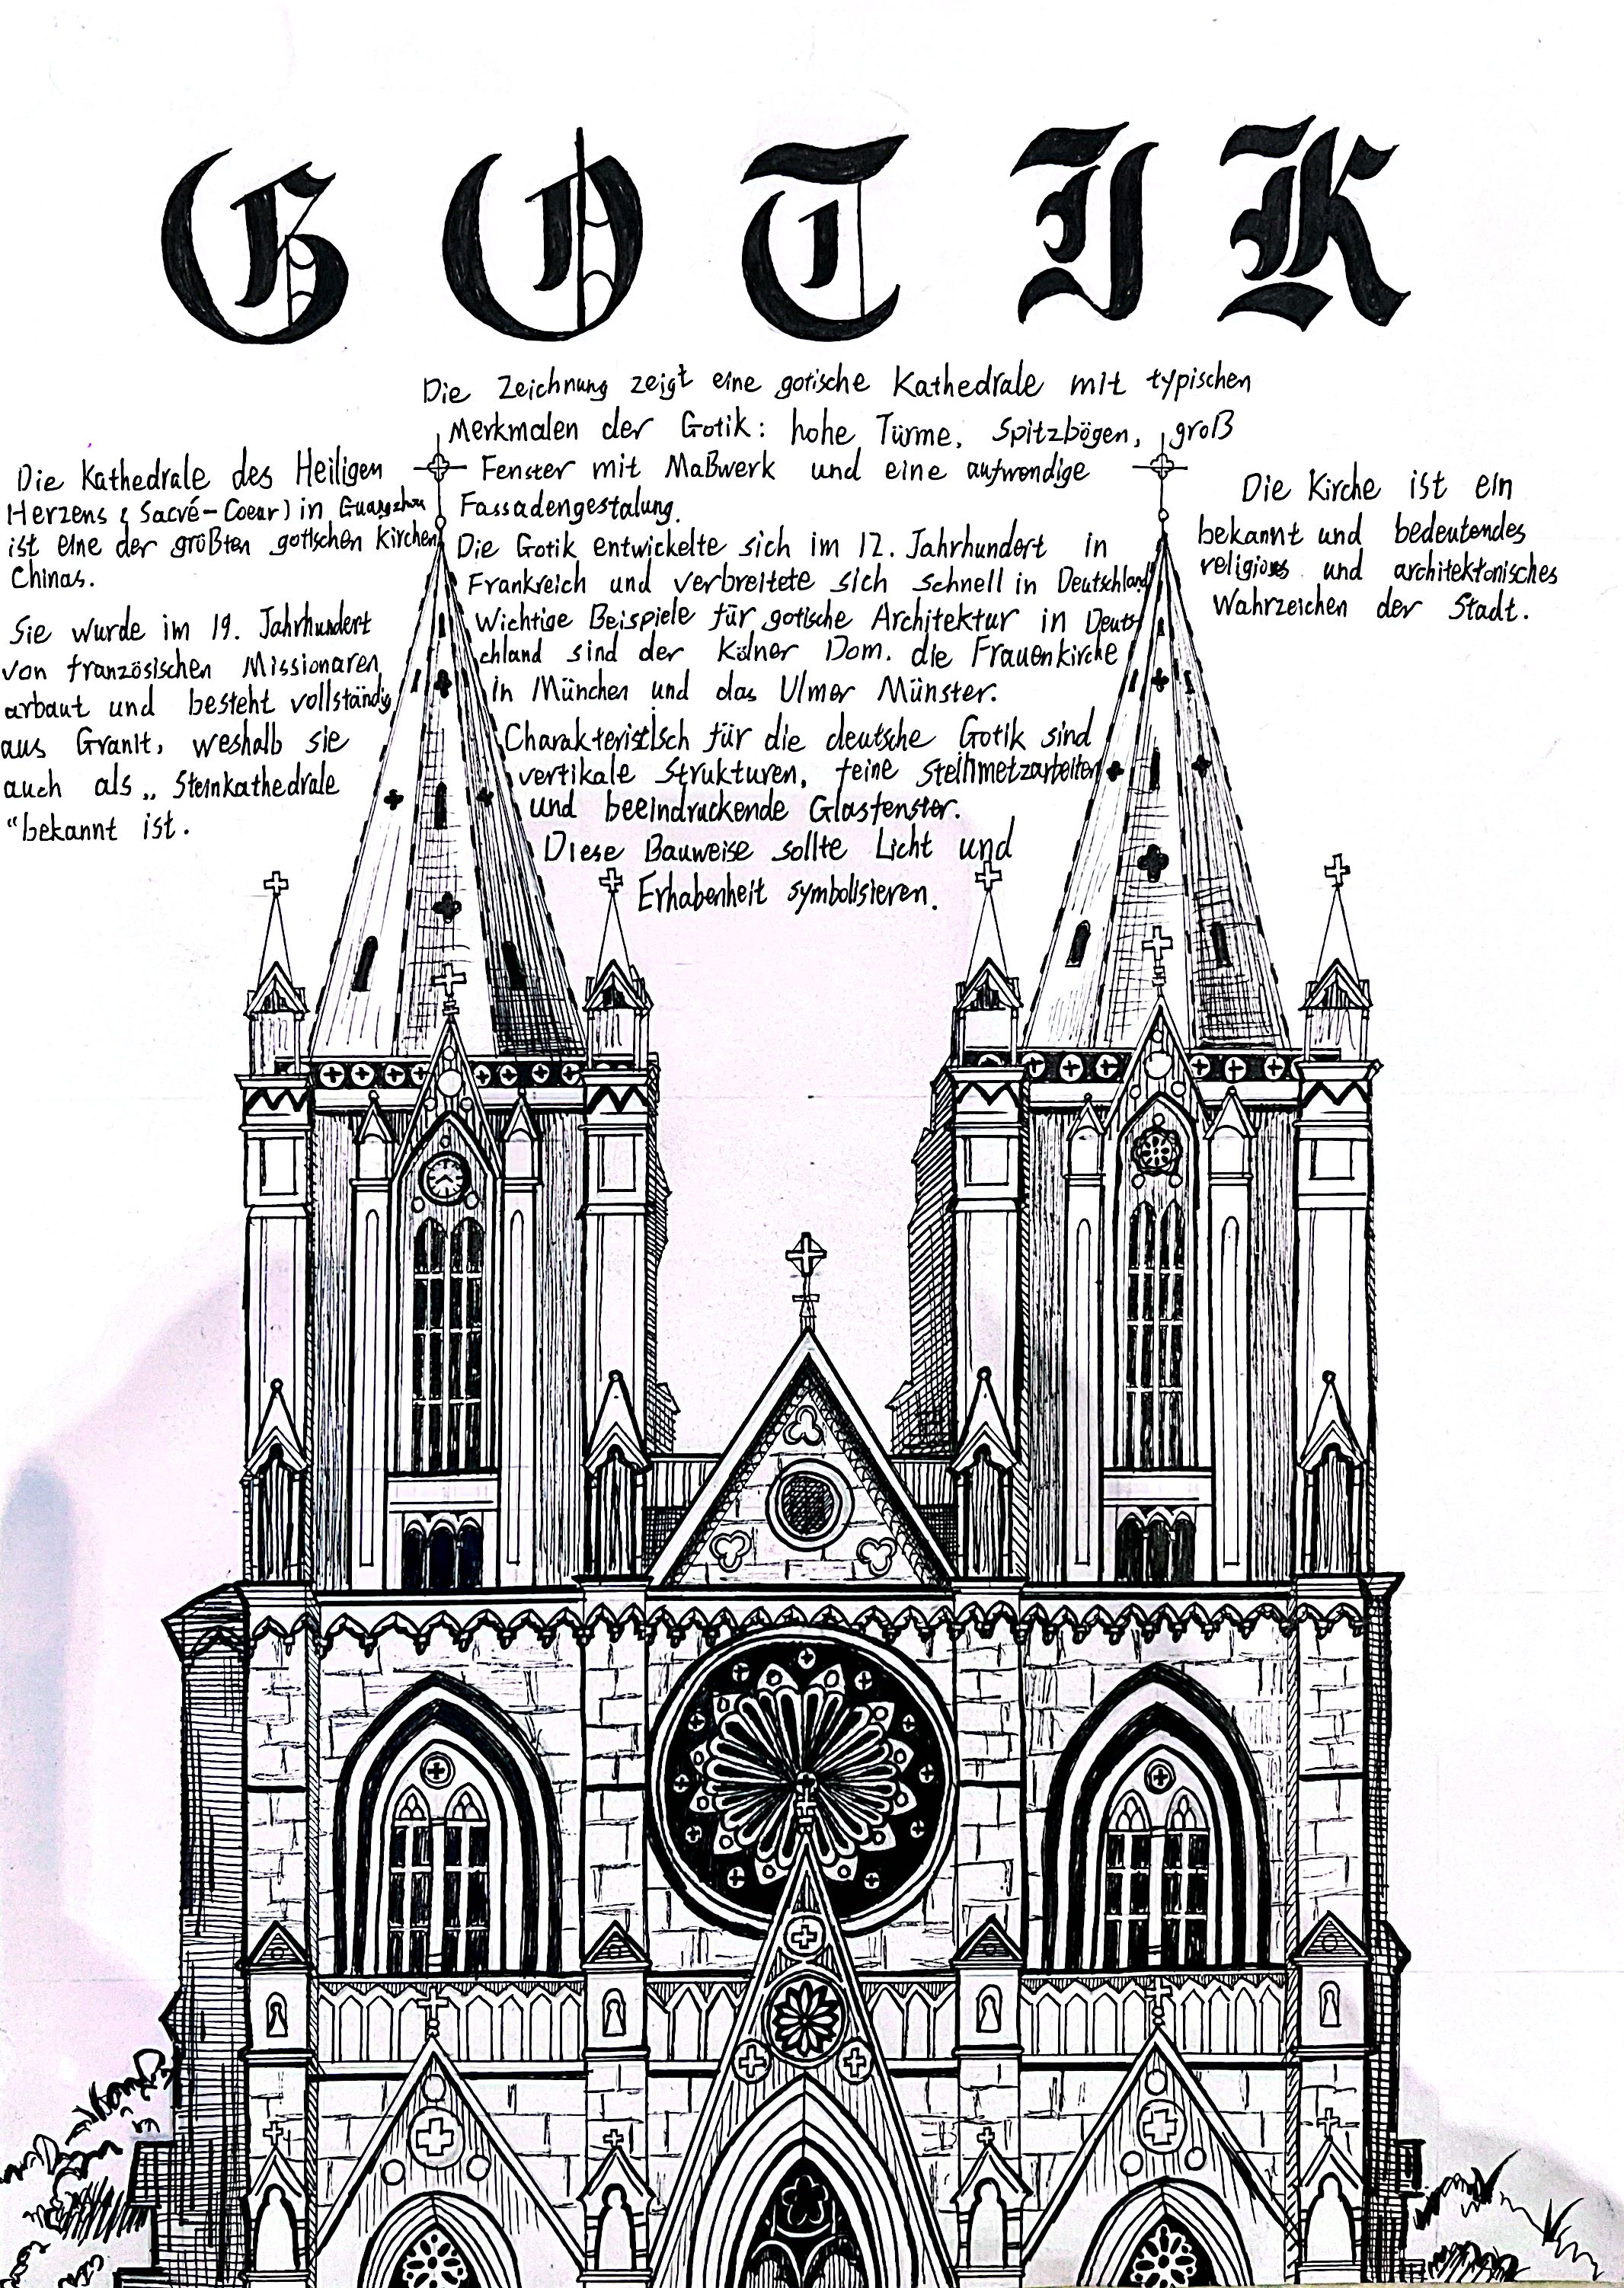 GOTIK
Die Zeichnung zeigt eine gotische Kathedrale mit typischen
Merkmalen der Gotik: hohe Türme, Spitzbögen, groß
Fenster mit Maßwerk und eine aufwendige
Fassadengestalung.
Die Gotik entwickelte sich im 12. Jahrhundert in
Frankreich und verbreitete sich schnell in Deutschland.
Wichtige Beispiele für gotische Architektur in Deuts
chland sind der Kölner Dom. die Frauenkirche
in München und das Ulmer Münster.
Charakteristisch für die deutsche Gotik sind
vertikale Strukturen, feine Steinmetzarbeiten
und beeindruckende Glasfenster.
Diese Bauweise sollte Licht und
Erhabenheit symbolisieren.
Die Kathedrale des Heiligen
Herzens (Sacré-Coeur) in Guangzhou
ist eine der größten gotischen Kirchen
Chinas.
Sie wurde im 19. Jahrhundert
von französischen Missionaren
arbaut und besteht vollständig
aus Granit, weshalb sie
auch als „Steinkathedrale
“bekannt ist.
Die Kirche ist ein
bekannt und bedeutendes
religiöses und architektonisches
Wahrzeichen der Stadt.